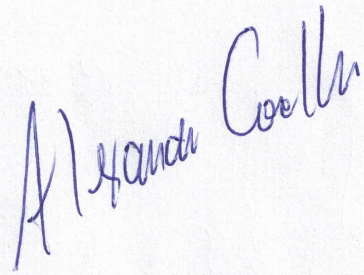 Alexandre Coelho